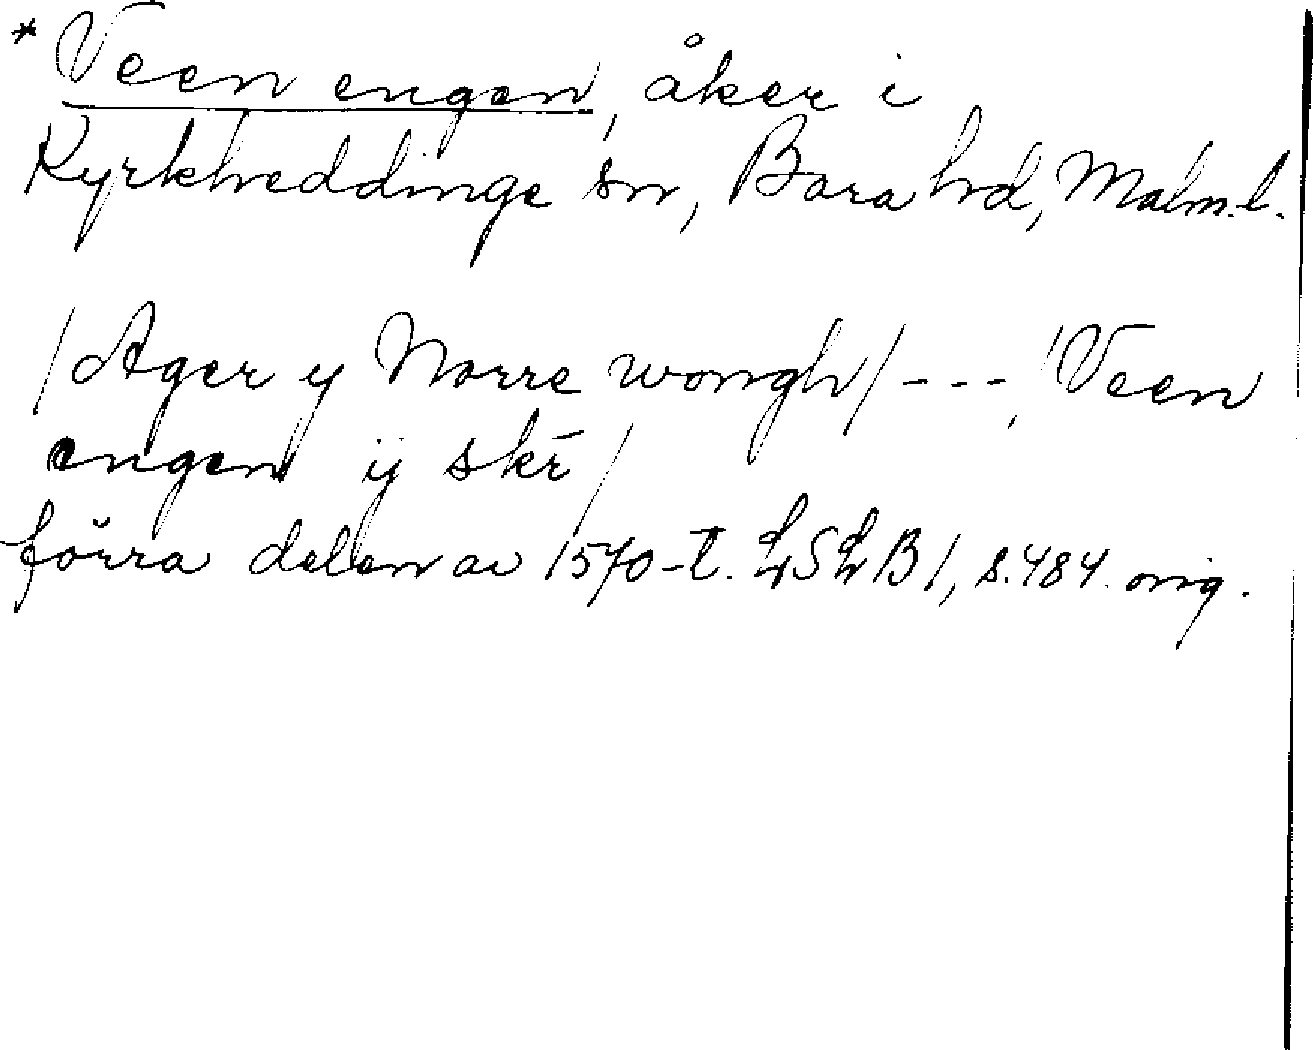 * Veen engen, åker i
Kyrkheddinge sn, Bara hd, Malm. l.
/Ager y Norre wongh/ - - -, /Veen
engen ij skē/
förra delen av 1570-t. LSLB 1, s. 484. orig.